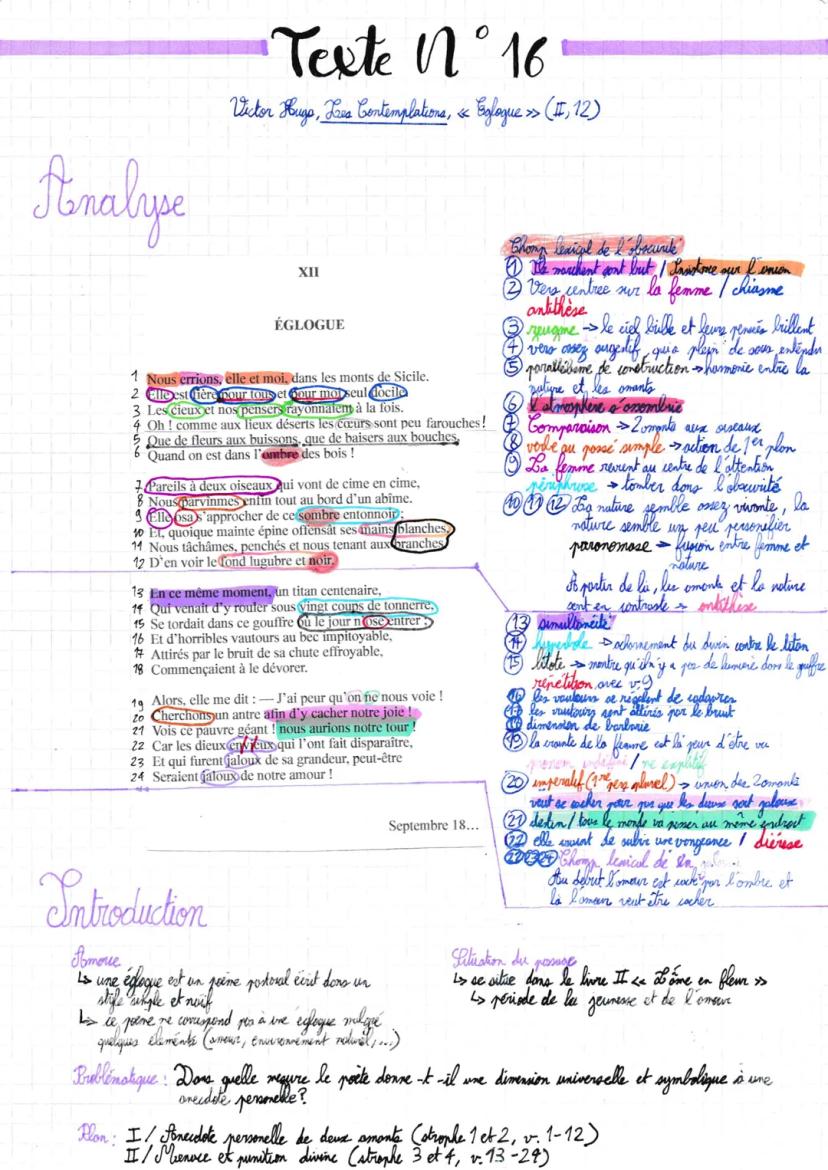 Texte N° 16
Victor Hugo, Les Contemplations, « Eglogue » (II, 12)
Analyse
XII
ÉGLOGUE
1 Nous errions, elle et moi, dans les monts de Sicile.
2 Elle est fière pour tous et pour moi seul docile.
3 Les cieux et nos pensers rayonnaient à la fois.
4 Oh ! comme aux lieux déserts les cœurs sont peu farouches !
5 Que de fleurs aux buissons, que de baisers aux bouches,
6 Quand on est dans l'ombre des bois !
7 Pareils à deux oiseaux qui vont de cime en cime,
8 Nous parvînmes enfin tout au bord d'un abîme.
9 Elle osa s'approcher de ce sombre entonnoir ;
10 Et, quoique mainte épine offensât ses mains blanches,
11 Nous tâchâmes, penchés et nous tenant aux branches,
12 D'en voir le fond lugubre et noir.
13 En ce même moment, un titan centenaire,
14 Qui venait d'y rouler sous vingt coups de tonnerre,
15 Se tordait dans ce gouffre où le jour n'ose entrer ;
16 Et d'horribles vautours au bec impitoyable,
17 Attirés par le bruit de sa chute effroyable,
18 Commençaient à le dévorer.
19 Alors, elle me dit : — J'ai peur qu'on ne nous voie !
20 Cherchons un antre afin d'y cacher notre joie !
21 Vois ce pauvre géant ! nous aurions notre tour !
22 Car les dieux envieux qui l'ont fait disparaître,
23 Et qui furent jaloux de sa grandeur, peut-être
24 Seraient jaloux de notre amour !
Septembre 18...
Champ lexical de l'obscurité
1 Ils marchent sont but / Insistance sur l'union
2 Vers centrée sur la femme / chiasme
antithèse
3 zeugme → le ciel brille et leurs pensées brillent
4 vers assez suggestif, qui a plein de sous entendu
5 parallélisme de construction → harmonie entre la
nature et les amants
6 l'atmosphère s'assombrie
7 Comparaison → 2 amants aux oiseaux
8 verbe au passé simple → action de 1er plan
9 La femme revient au centre de l'attention
périphrase → tomber dans l'obscurité
10 11 12 La nature semble assez vivante, la
nature semble un peu personifier
paronomase → fusion entre femme et
nature
À partir de là, les amants et la nature
sont en contraste → antithèse
13 simultanéité
14 hyperbole → acharnement du divin contre le titan
15 litote → montre qu'il n'y a pas de lumière dans le gouffre
répétition avec v.9
16 les vautours se régalent de cadavres
17 les vautours sont attirés par le bruit
18 dimension de barbarie
19 la crainte de la femme est la peur d'être vu
pronom indéfini / ne explétif
20 impératif (1re pers pluriel) → union des 2 amants
veut se cacher pour pas que les dieux sont jaloux
21 destin / tous le monde va passer au même endroit
22 elle craint de subir une vengeance / diérèse
22 23 24 Champ lexical de la
Au début l'amour est caché par l'ombre et
là l'amour veut être cacher
Introduction
Amorce
↳ une églogue est un poème pastoral écrit dans un
style simple et naïf
↳ ce poème ne correspond pas à une églogue malgré
quelques éléments (amour, environnement naturel,...)
Situation du passage
↳ se situe dans le livre II « L'âme en fleur »
↳ période de la jeunesse et de l'amour
Problématique : Dans quelle mesure le poète donne-t-il une dimension universelle et symbolique à une
anecdote personnelle ?
Plan : I/ Anecdote personelle de deux amants (strophe 1 et 2, v. 1-12)
II/ Menace et punition divine (strophe 3 et 4, v. 13-24)